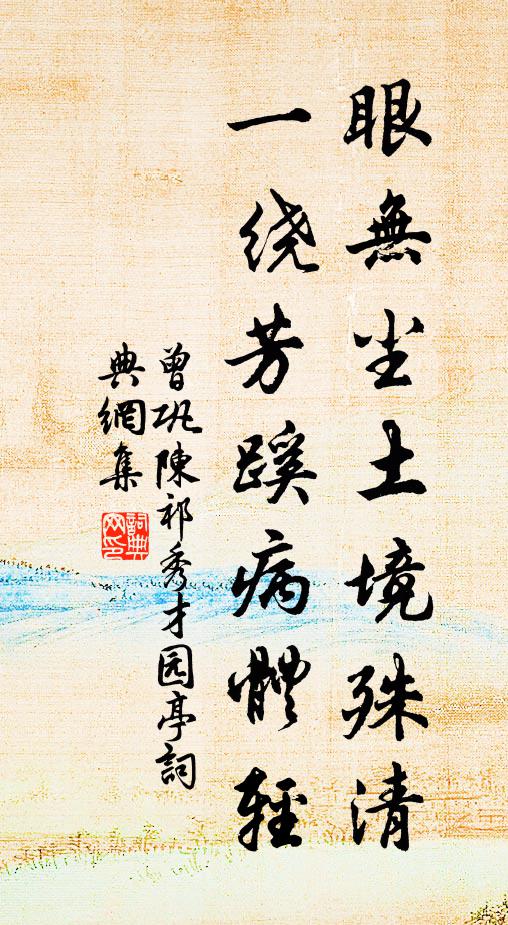 眼無尘土境殊清
一绕芳蹊病體輕
曾巩陳祁秀才园亭詞
典網集
詞典
网印